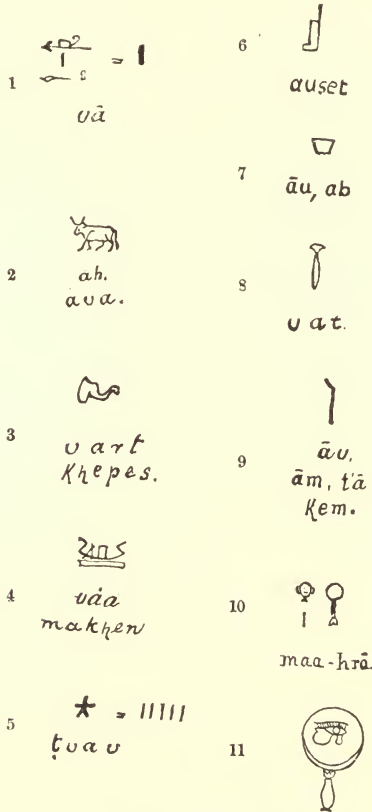 1
= 1
uā
2
ah.
āua.
3
uart
Khepes.
4
uáa
makhen
5
= 11111
ṭuau
6
auset
7
āu, ab
8
uat.
9
āu,
ām, t'ā
Kem.
10
maa-hrā
11